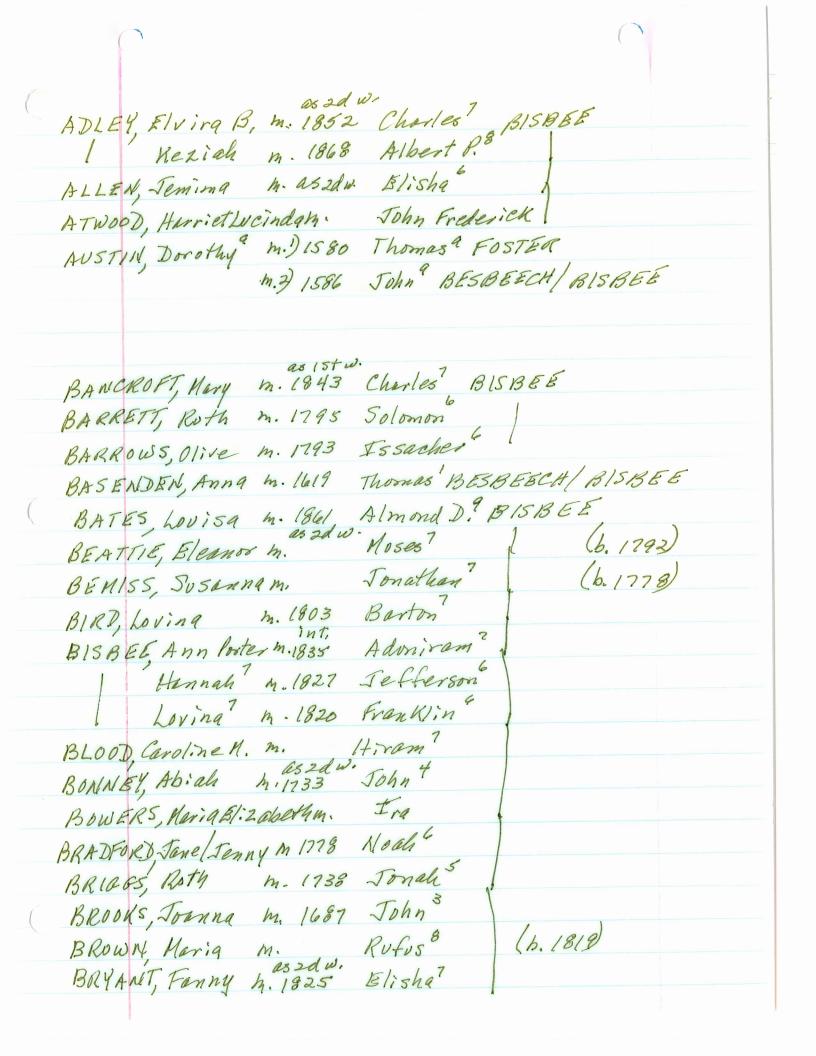 as 2d w.
ADLEY, Elvira B, m. 1852 Charles⁷ BISBEE
| Keziah m. 1868 Albert P.⁸
ALLEN, Jemima m. as 2d w. Elisha⁶
ATWOOD, Harriet Lucinda m. John Frederick
AUSTIN, Dorothyᵃ m.1) 1580 Thomasᵃ FOSTER
m.2) 1586 Johnᵃ BESBEECH/BISBEE
as 1st w.
BANCROFT, Mary m. 1843 Charles⁷ BISBEE
BARRETT, Ruth m. 1795 Solomon⁶ |
BARROWS, Olive m. 1793 Issacher⁶
BASENDEN, Anna m. 1619 Thomas¹ BESBEECH/BISBEE
BATES, Lovisa m. 1861 Almond D.⁹ BISBEE
as 2d w.
BEATTIE, Eleanor m. Moses⁷ (b. 1792)
BEMISS, Susanna m. Jonathan⁷ (b. 1778)
BIRD, Lovina m. 1803 Barton⁷
int.
BISBEE, Ann Porter m. 1835 Adoniram⁷
Hannah⁷ m. 1827 Jefferson⁶
| Lovina⁷ m. 1820 Franklin⁶
BLOOD, Caroline M. m. Hiram⁷
as 2d w.
BONNEY, Abiah m. 1733 John⁴
BOWERS, Maria Elizabeth m. Ira
BRADFORD, Jane/Jenny m 1778 Noah⁶
BRIGGS, Ruth m. 1738 Jonah⁵
BROOKS, Joanna m. 1687 John³
BROWN, Maria m. Rufus⁸ (b. 1818)
as 2d w.
BRYANT, Fanny m. 1825 Elisha⁷